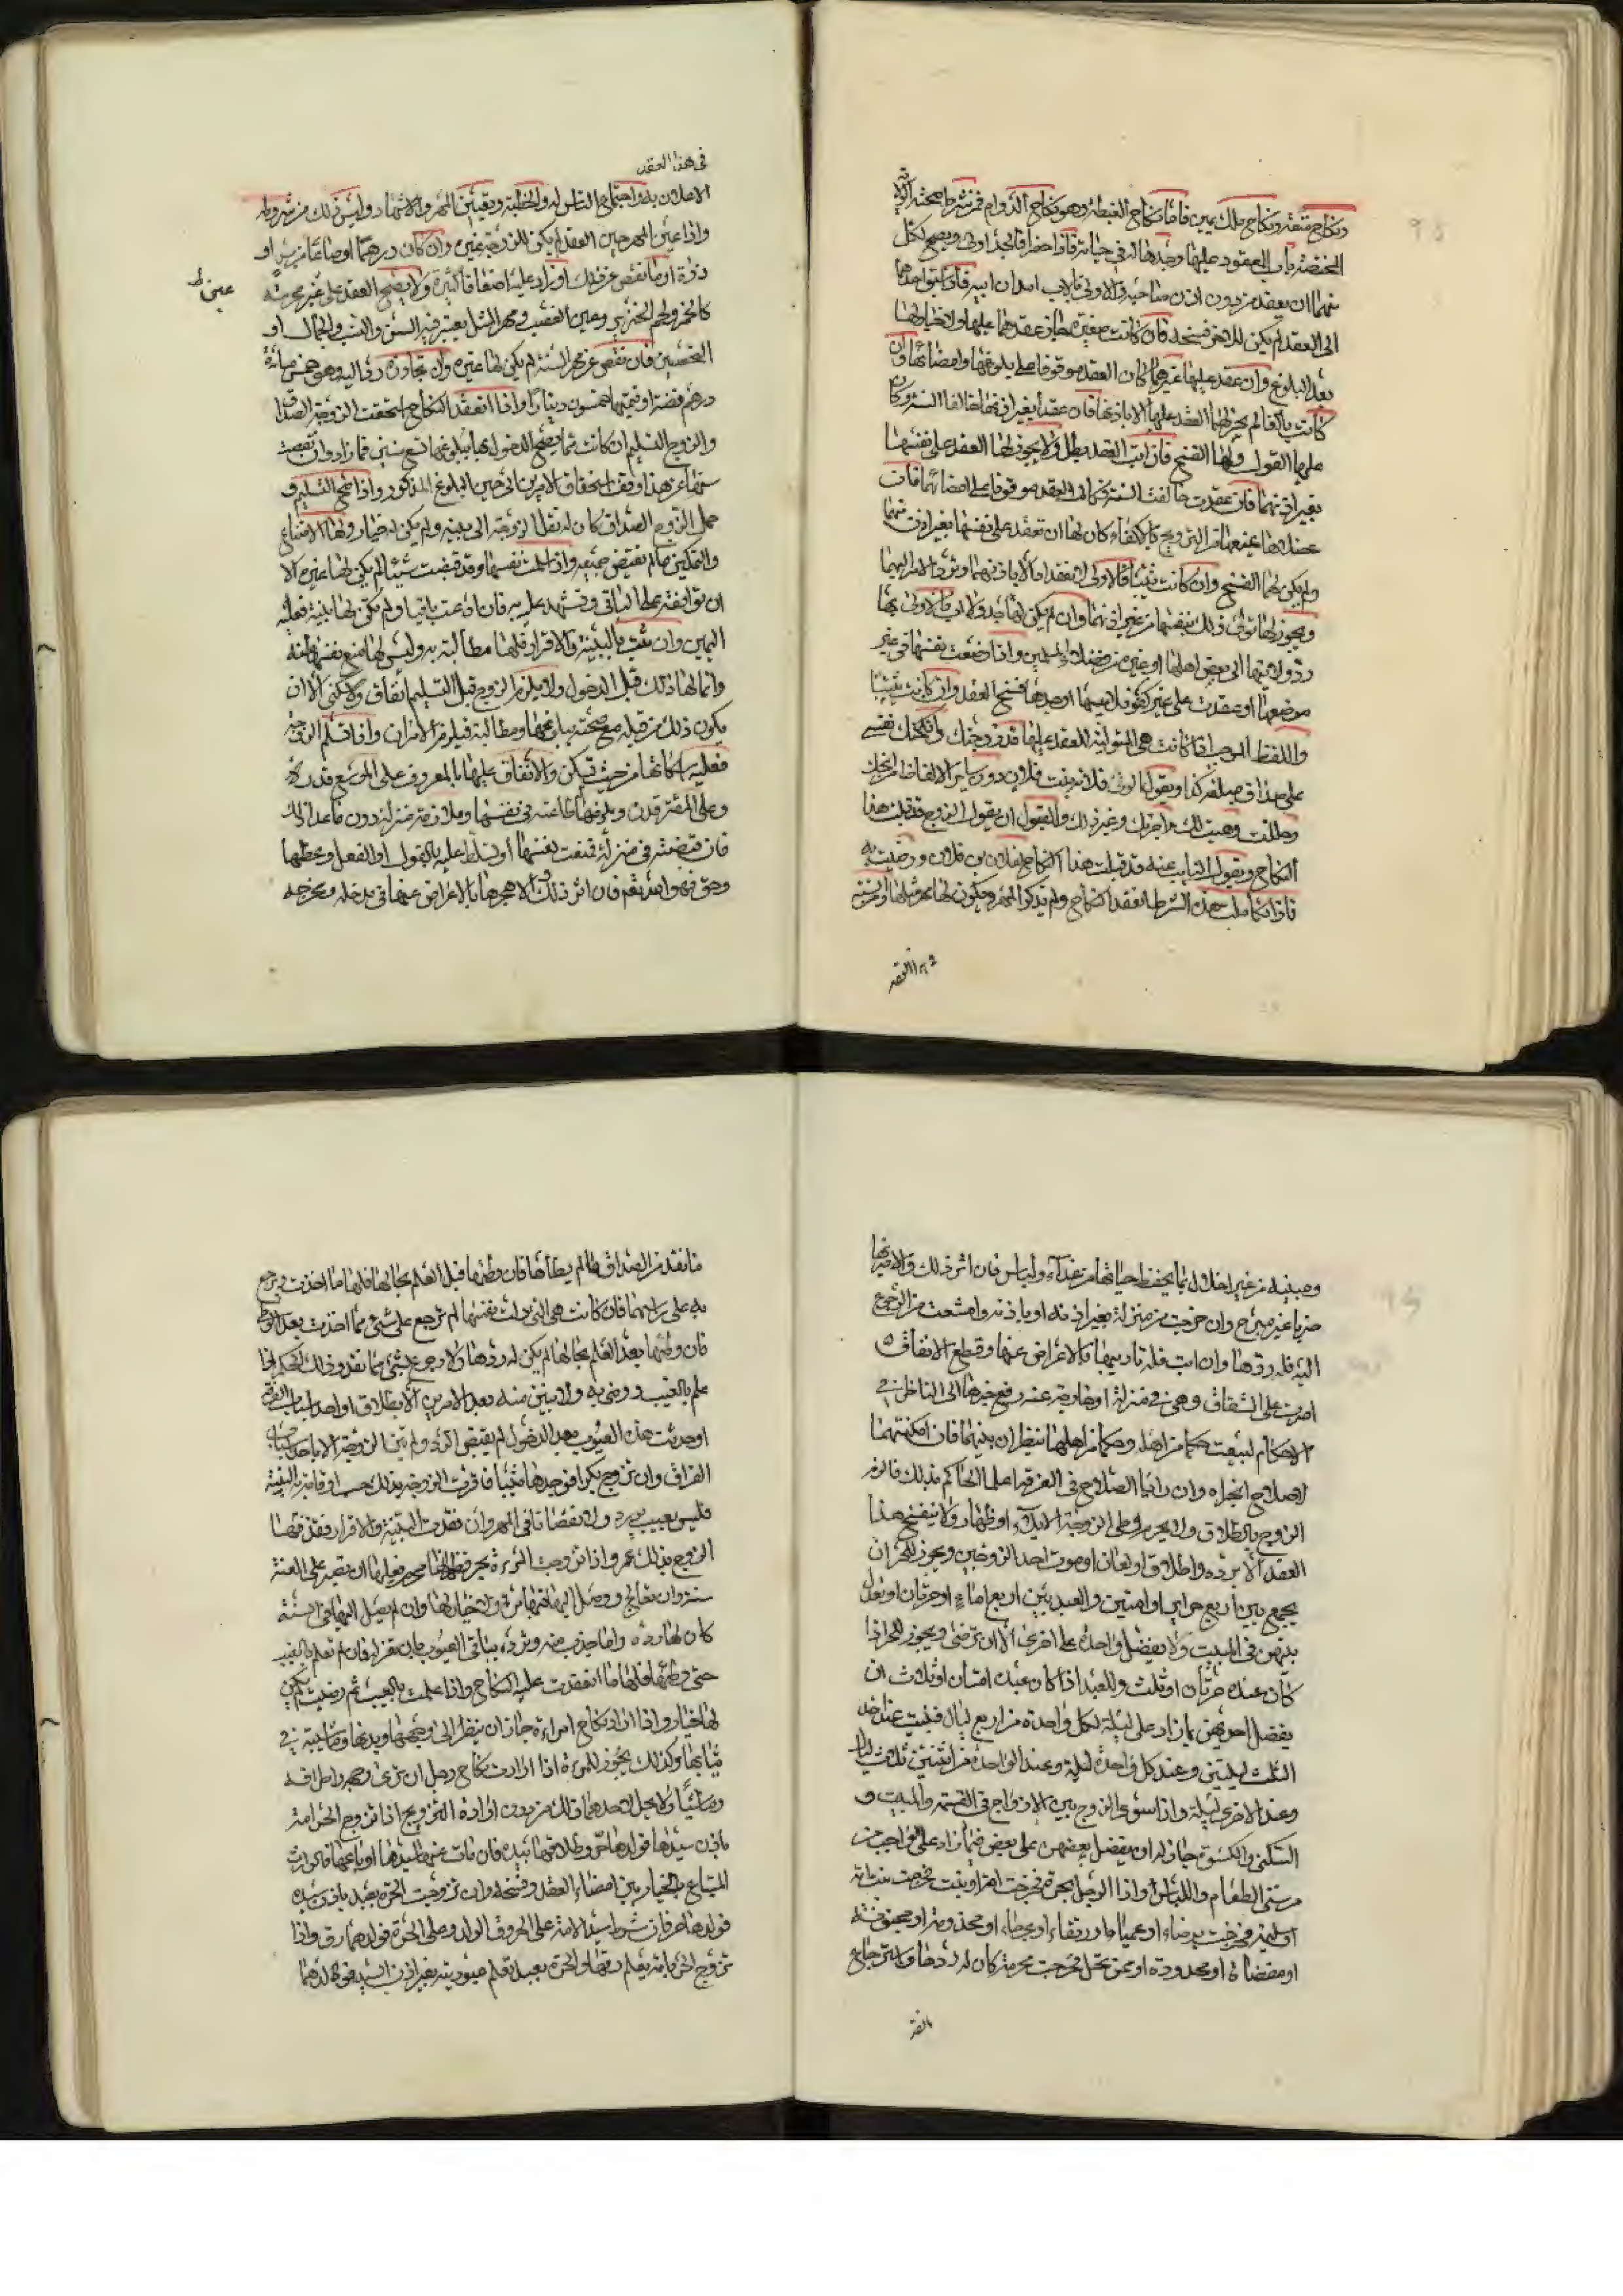 ونكاح متعة ونكاح ملك يمين فاما نكاح الغبطة وهو نكاح الدوام فمن شرط صحته الولاية
المختصة باب العقود عليها وجدها له في حياته فاذا حضرا فالجد اولى ويصح لكل
منهما ان يعقد من دون اذن صاحبه والاولى للاب استيذان ابيه فاذا سبق احدهما
الى العقد لم يكن للاخر فسخه فان كانت صغيرة مضى عقدهما عليها ولا خيار لها
بعد البلوغ وان عقد عليها غيرهما كان العقد موقوفا على بلوغها وامضائها وان
كانت بالغا لم يجز لهما العقد عليها الا باذنها فان عقدا بغير اذنها خالفا السنة وكان
عليها القول ولها الفسخ فان ابت العقد بطل ولا يجوز لها العقد على نفسها
بغير اذنهما فان عقدت خالفت السنة وكان العقد موقوفا على امضائهما فان
عضلاها بمنعها من التزويج بالاكفاء كان لها ان تعقد على نفسها بغير اذن منهما
ولم يكن لهما الفسخ وان كانت ثيبا فالاولى ان لا تعقد الا باذنهما او ترد الامر اليهما
ويجوز لها تولى ذلك بنفسها من غير اذنهما وان لم يكن لها جد ولا اب فالاولى بها
رد ولايتها الى بعض اهلها او غيره من فضلاء المسلمين واذا وضعت نفسها في غير
موضعها او عقدت على غير كفو فلابيها او جدها فسخ العقد وان كانت ثيبا
واللفظ الموجب اذا كانت هي المتولية للعقد عليها قد زوجتك وانكحتك نفسي
على صداق مبلغه كذا ويقول الولى فلانة بنت فلان دون سائر الالفاظ من ابحتك
وحللت ووهبت لك واجرتك وغير ذلك والقبول ان يقول الزوج قد قبلت هذا
النكاح ويقول النايب عنه قد قبلت هذا النكاح لفلان بن فلان ورضيت به
فاذا تكاملت هذه الشروط انعقد النكاح ولم يذكر المهر ويكون لها مهر مثلها ومن السنة
في هذا العقد
الاعلان به واجتماع الناس له والخطبة وتعيين المهر والاشهاد وليس ذلك من شروطه
واذا عين المهر حين العقد لم يكن للزوجة غيره وان كان درهما او صاعا من بر او
ذرة او ما نقص عن ذلك او زاد عليه اضعافا كثيرة ولا يصح العقد على غير محرمة
كالخمر ولحم الخنزير وعين الغصب ومهر المثل يعتبر فيه السن والنسب والجمال او
التخصيص فان نقص عن مهر السنة لم يكن لها غيره وان تجاوزه رد اليه وهو خمس مائة
درهم فضة او قيمتها خمسون دينارا واذا انعقد النكاح استحقت الزوجة الصداق
والزوج التسليم ان كانت ممن يصح الدخول بها ببلوغها تسع سنين فما زاد وان نقصت
سنها عن هذا وقف استحقاق الامرين الى حين البلوغ المذكور واذا صح التسليم و
حمل الزوج الصداق كان له نقل الزوجة الى بيته ولم يكن له خيار ولها الامتناع
والتمكين ما لم تقبض جميعه واذا سلمت نفسها وقد قبضت شيئا لم يكن لها غيره الا
ان توافقه على الباقي وتشهد عليه به فان ادعت باقيا ولم تكن لها بينة فعليه
اليمين وان ثبت بالبينة والاقرار فلها مطالبته به وليس لها منع نفسها منه
وانما لها ذلك قبل الدخول ولا يلزم الزوج قبل التسليم انفاق ولا سكنى الا ان
يكون ذلك من قبله مع صحته ببلوغها ومطالبته فيلزمه الامران واذا تسلم الزوجة
فعليه اسكانها من حيث سكن والانفاق عليها بالمعروف على الموسع قدره
وعلى المقتر قدره ويلزمها طاعته في نفسها وملازمة منزله دون ما عدا ذلك
فان قبضته في منزله فمنعت نفسها او تسلط عليه بالقول او الفعل وعظها
وخوفها الله تعالى فان اثر ذلك والا هجرها بالاعراض عنها في مدخله ومخرجه
ومبيته من غير اخلال بما يحفظ حياتها من غذاء ولباس فان اثر ذلك والا ضربها
ضربا غير مبرح وان خرجت من منزله بغير اذنه او باذنه وامتنعت من الرجوع
اليه فله ردها وان ابت فله تاديبها بالاعراض عنها وقطع الانفاق
اصرت على الشقاق وهي في منزله او خارجة عنه رفع خبرها الى الناظر في
الاحكام ليبعث حكما من اهله وحكما من اهلها ينظران بينهما فان امكنهما
الاصلاح انجزاه وان رايا الصلاح في الفرقة اعلما الحاكم بذلك فالزم
الزوج بالطلاق ولا يحرم وطى الزوجة الايلاء او ظهار ولا ينفسخ هذا
العقد الا بردة واطلاق او لعان او موت احد الزوجين ويجوز للحر ان
يجمع بين اربع حراير او امتين وللعبد بين اربع اماء او حرتان او يعدل
بينهن في المبيت ولا يفضل واحدة على اخرى الا ان ترضى ويجوز للحر اذا
كان عنده حرتان او ثلث وللعبد اذا كان عنده امتان او ثلاث ان
يفضل احديهن بما زاد على ليلة لكل واحدة من اربع ليال فيبيت عند احد
الثلث ليلتين وعند كل واحدة ليلة وعند الواحدة من اثنتين ثلاث ليال
وعند الاخرى ليلة واذا سوى الزوج بين الازواج في القسمة والمبيت و
السكنى والكسوة جاز له ان يفضل بعضهن على بعض فيما زاد على الواجب من
مرتفع الطعام واللباس واذا تزوج الرجل بحرة فخرجت امة او بنت مهيرة فخرجت بنت امة
او سليمة فخرجت برصاء او عمياء او رتقاء او عرجاء او مجذومة او مجنونة
او مفضاة او محدودة او ممن تحل فخرجت محرمة كان له ردها واسترجاع
ما نقد من الصداق ما لم يطأها فان وطئها قبل العلم بحالها فلها ما اخذت ويرجع
به على وليها فان كانت هي التي تولت نفسها لم ترجع على شيء مما اخذت بعد الوطى
فان وطئها بعد العلم بحالها لم يكن له ردها ولا رجوع بشيء مما نقد وكذلك الحكم اذا
علم بالعيب ورضى به ولا تبين منه بعد الامرين الا بطلاق او احد اسباب الفرقة
او حدثت هذه العيوب بعد الدخول لم يقتض الرد ولم تبن الزوجة الا باحد اسباب
الفراق وان تزوج بكرا فوجدها ثيبا فاقرت الزوجة بذلك حسب او قامت به البينة
فليس بعيب يرد ولا نقصانا في المهر وان فقدت البينة والاقرار فقذفها
الزوج بذلك عزر واذا تزوجت المرءة بحر فظهر لها
سنة وان تعالج ووصل اليها فيها مرة فلا خيار لها وان لم يصل اليها في السنة
كان لها رده واما
حتى وطئها فلها ما انعقدت عليه النكاح واذا علمت بالعيب ثم رضيت لم يكن
لها خيار واذا اراد نكاح امراءة جاز ان ينظر الى وجهها ويديها وماشية في
ثيابها وكذلك يجوز للمرءة اذا ارادت نكاح رجل ان ترى وجهه واطرافه
وماشيا ولا يحل لاحدهما ذلك من دون ارادة التزويج اذا تزوج الحر امة
باذن سيدها فولدها حر وطلاقها بيده فان مات عنها سيدها او باعها فالوارث
المبتاع بالخيار بين امضاء العقد وفسخه وان تزوجت الحرة بعبد باذن سيده
فولدها حر فان شرط سيد الامة على الحر رق الولد وعلى الحرة فولدهما رق واذا
تزوج الحر بامة يعلم رقها والحرة بعبد يعلم عبوديته بغير اذن السيد فولدهما